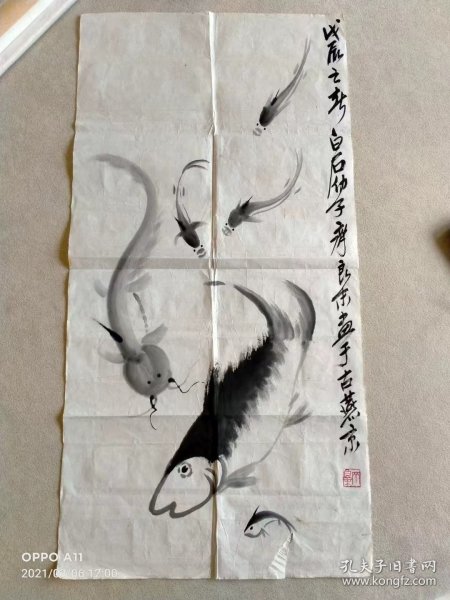 戊辰之春 白石幼子齐良末画于古燕京
OPPO A11
2021/03/06 17:00
孔夫子旧书网
www.kongfz.com